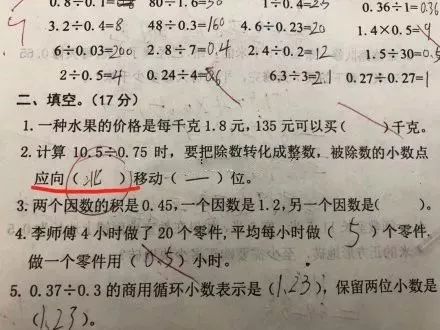 0.8÷0.1=8 80÷1.6=50 1÷0.4=25 0.36÷1=0.36
3.2÷0.4=8 48÷0.3=160 4.6÷0.23=20 1.4×0.5=
6÷0.03=200 2.8÷7=0.4 2.4÷0.2=12 1.5÷30=0.5
2÷0.5=4 0.24÷4= 6.3÷3=2.1 0.27÷0.27=1
二、填空。(17分)
1.一种水果的价格是每千克1.8元,135元可以买( )千克。
2.计算10.5÷0.75时,要把除数转化成整数,被除数的小数点
应向(北)移动(一)位。
3.两个因数的积是0.45,一个因数是1.2,另一个因数是( )。
4.李师傅4小时做了20个零件,平均每小时做(5)个零件,
做一个零件用(0.5)小时。
5.0.37÷0.3的商用循环小数表示是(1.23),保留两位小数是
(1.23)。